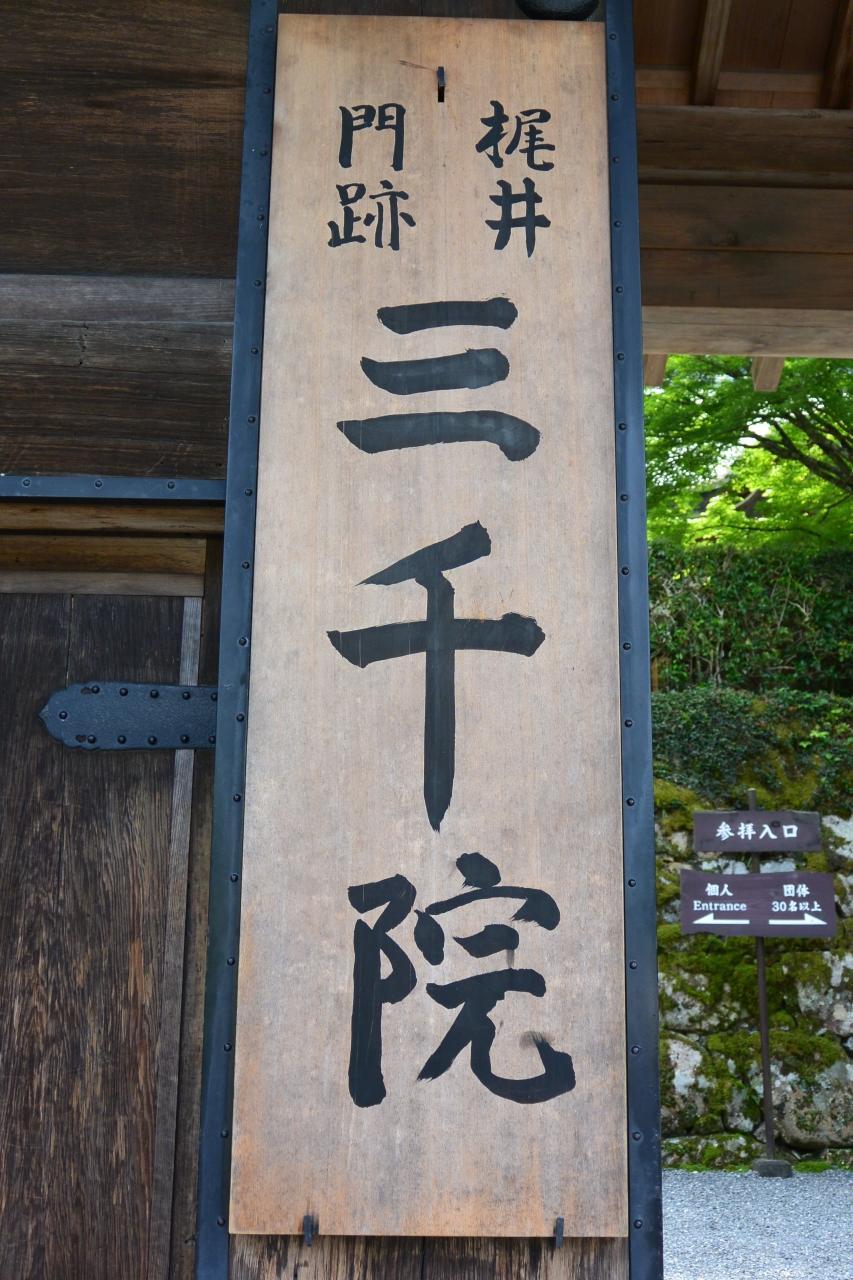 梶井
門跡
三千院
参拝入口
個人 団体
Entrance 30名以上